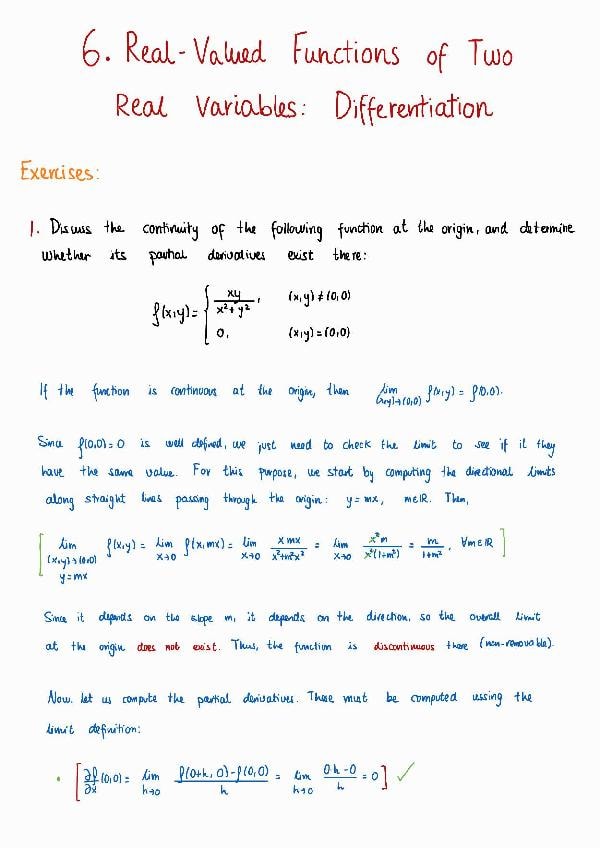 6. Real-Valued Functions of Two
Real Variables: Differentiation
Exercises:
1. Discuss the continuity of the following function at the origin, and determine
whether its partial derivatives exist there:
f(x,y) = { xy/(x²+y²), (x,y) ≠ (0,0)
0, (x,y) = (0,0)
If the function is continuous at the origin, then lim (x,y)→(0,0) f(x,y) = f(0,0).
Since f(0,0)=0 is well defined, we just need to check the limit to see if it they
have the same value. For this purpose, we start by computing the directional limits
along straight lines passing through the origin: y=mx, m∈ℝ. Then,
[ lim (x,y)→(0,0) y=mx f(x,y) = lim x→0 f(x,mx) = lim x→0 xmx/(x²+m²x²) = lim x→0 x²m/(x²(1+m²)) = m/(1+m²), ∀m∈ℝ ]
Since it depends on the slope m, it depends on the direction, so the overall limit
at the origin does not exist. Thus, the function is discontinuous there (non-removable).
Now, let us compute the partial derivatives. These must be computed ussing the
limit definition:
• [ ∂f/∂x (0,0) = lim h→0 (f(0+h,0)-f(0,0))/h = lim h→0 (0·h-0)/h = 0 ] ✓